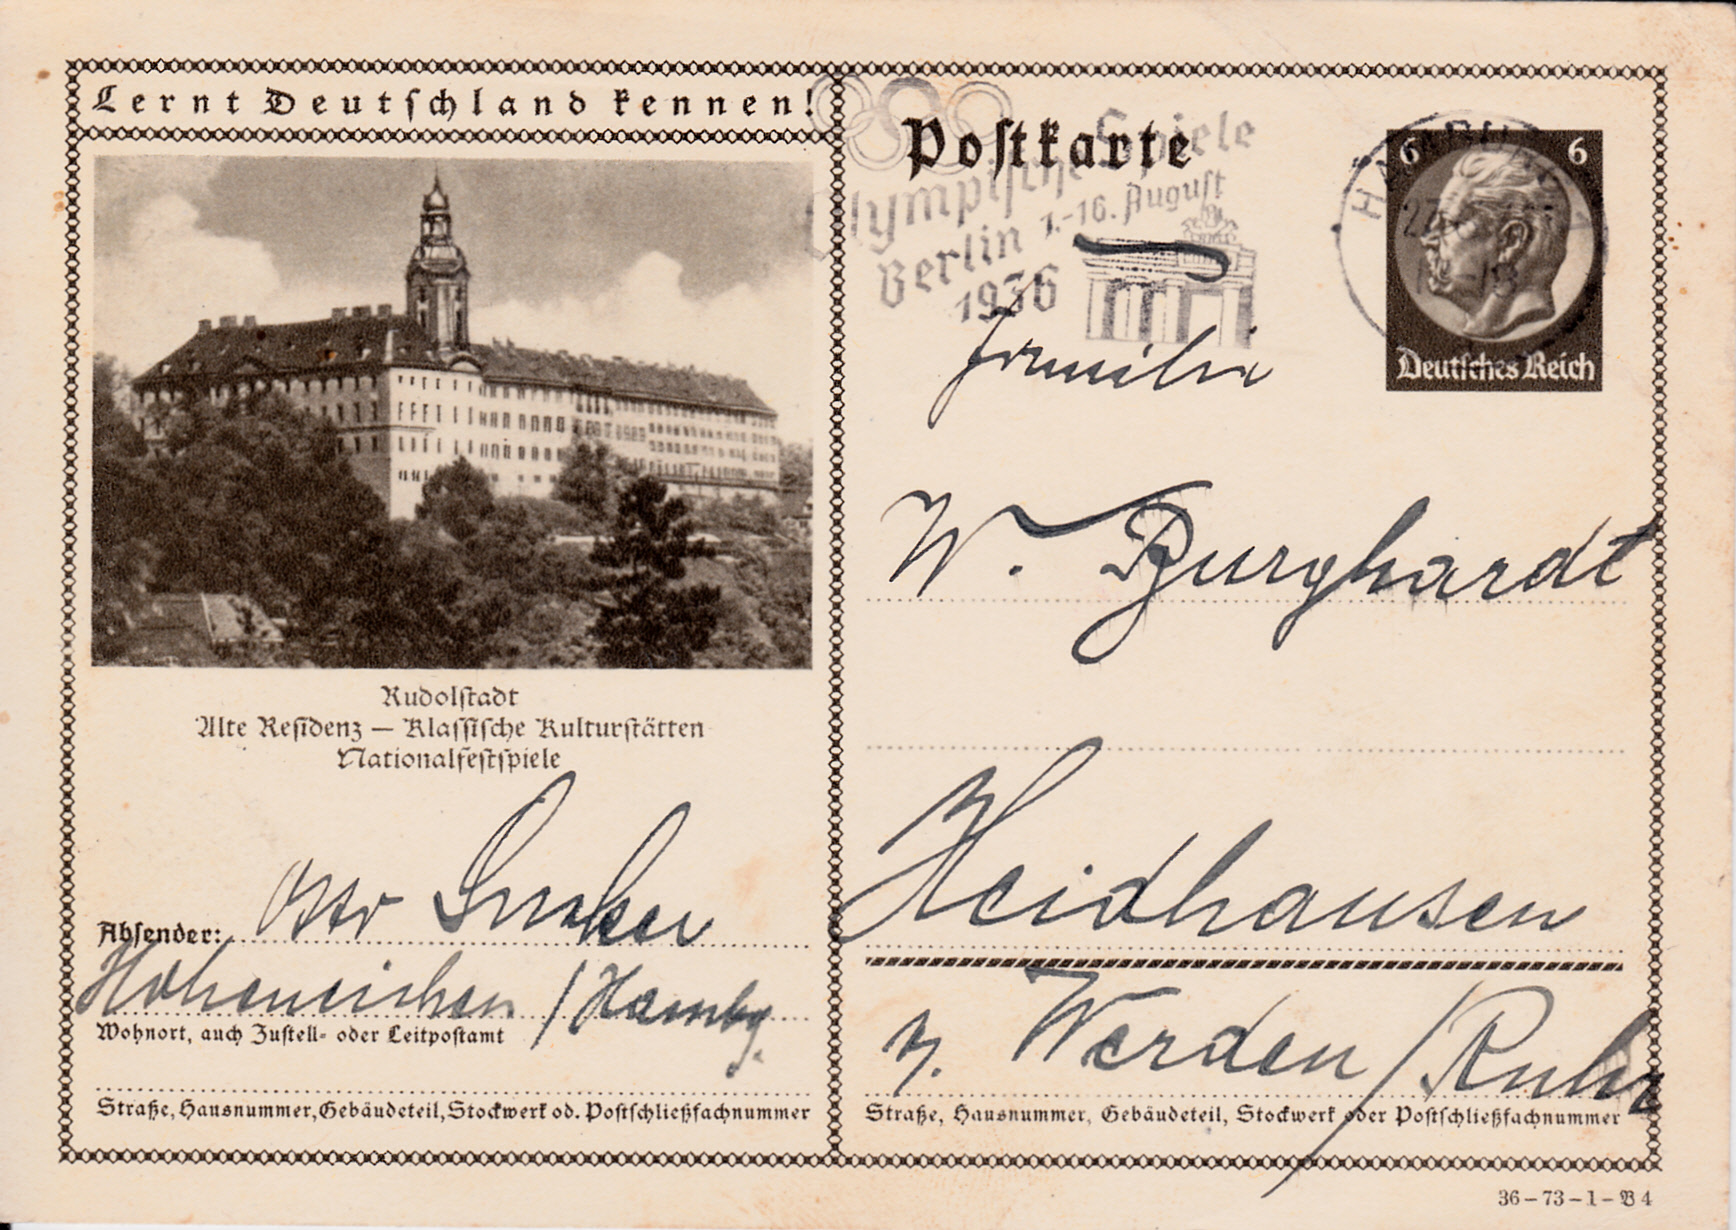 Lernt Deutschland kennen!
Rudolstadt
Alte Residenz – Klassische Kulturstätten
Nationalfestspiele
Absender: Otto
Hoheneichen / Hambg.
Wohnort, auch Zustell- oder Leitpostamt
Straße, Hausnummer, Gebäudeteil, Stockwerk od. Postschließfachnummer
Postkarte
Olympische Spiele
Berlin 1.-16. August
1936
HAMBURG
6 6
Deutsches Reich
Familie
W. Burghardt
Heidhausen
b. Werden / Ruhr
Straße, Hausnummer, Gebäudeteil, Stockwerk oder Postschließfachnummer
36 – 73 – 1 – B 4